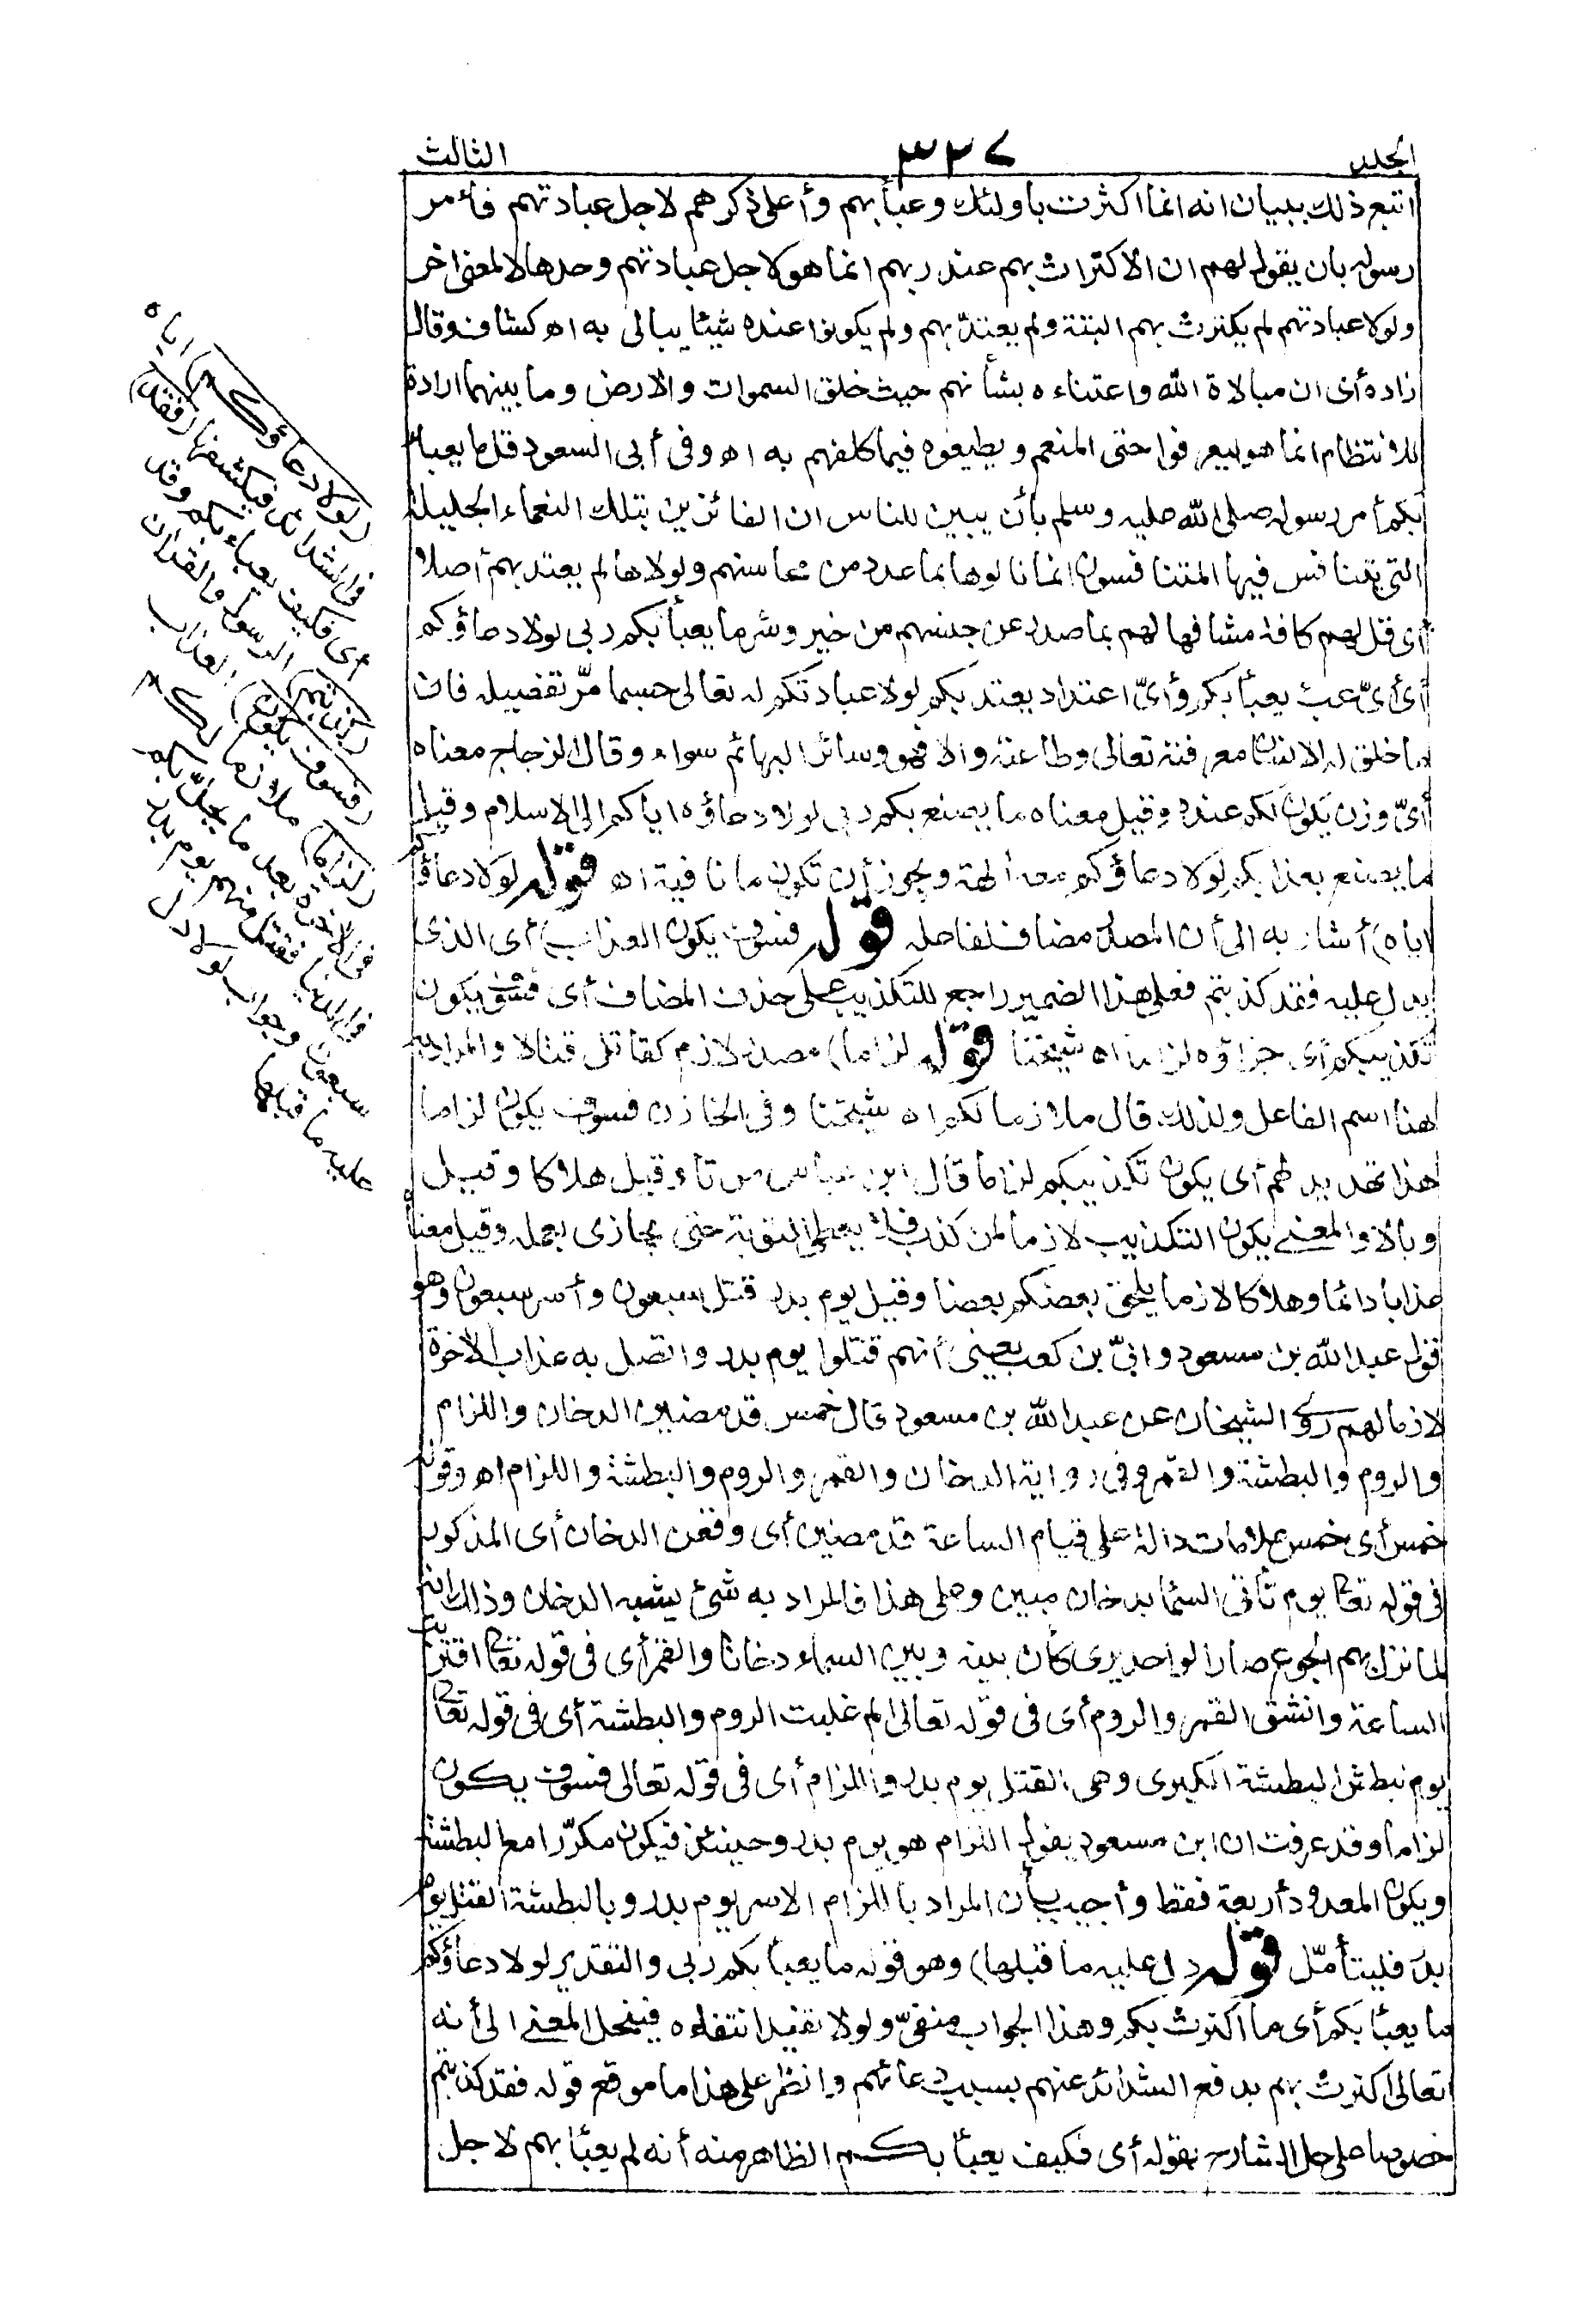 الجلد ٣٢٧ الثالث
اتبع ذلك ببيان انه انما اكثرت باولئك وعبأ بهم وأعلى ذكرهم لاجل عبادتهم فأمر
رسوله بان يقول لهم ان الاكتراث بهم عند ربهم انما هو لاجل عبادتهم وحدها لا لمعنى اخر
ولولا عبادتهم لم يكترث بهم البتة ولم يعتدّ بهم ولم يكونوا عنده شيئا يبالى به اه كشاف وقال
زاده أى ان مبالاة الله واعتناءه بشأنهم حيث خلق السموات والارض وما بينهما ارادة
للانتظام انما هو ليعرفوا حق المنعم ويطيعوه فيما كلفهم به اه وفى أبى السعود قل ما يعبأ
بكم أمر رسوله صلى الله عليه وسلم بأن يبين للناس ان الفائزين بتلك النعماء الجليلة
التى يتنافس فيها المتنافسون انما نالوها بما عدد من محاسنهم ولولاها لم يعتد بهم أصلا
أى قل لهم كافة مشافها لهم بما صدر عن جنسهم من خير وشر ما يعبأ بكم ربى لولا دعاؤكم
أى أىّ عبء يعبأ بكم وأىّ اعتداد يعتد بكم لولا عبادتكم له تعالى حسبما مرّ تفصيله فان
ما خلق له الانسان معرفته تعالى وطاعته والا فهو وسائر البهائم سواء وقال الزجاج معناه
أىّ وزن يكون لكم عنده وقيل معناه ما يصنع بكم ربى لولا دعاؤه اياكم الى الاسلام وقيل
ما يصنع بعذابكم لولا دعاؤكم معه ألهة ويجوز أن تكون ما نافية اه قوله لولا دعاؤكم
اياه) أشار به الى أن المصدر مضاف لفاعله قوله فسوف يكون العذاب) أى الذى
يدل عليه فقد كذبتم فعلى هذا الضمير راجع للتكذيب على حذف المضاف أى فسوف يكون
تكذيبكم أى جزاؤه لزاما اه شيخنا قوله لزاما) مصدر لازم كقاتل قتالا والمراد به
هنا اسم الفاعل ولذلك قال ملازما لكم اه شيخنا وفى الخازن فسوف يكون لزاما
هذا تهديد لهم أى يكون تكذيبكم لزاما قال ابن عباس موتا وقيل هلاكا وقيل
وبالا والمعنى يكون التكذيب لازما لمن كذب فلا يعطى التوبة حتى يجازى بعمله وقيل معناه
عذابا دائما وهلاكا لازما يلحق بعضكم بعضا وقيل يوم بدر قتل سبعون وأسر سبعون وهو
قول عبد الله بن مسعود وابىّ بن كعب يعنى أنهم قتلوا يوم بدر واتصل به عذاب الاخرة
لازما لهم روى الشيخان عن عبد الله بن مسعود قال خمس قد مضين الدخان واللزام
والروم والبطشة والقمر وفى رواية الدخان والقمر والروم والبطشة واللزام اه وقوله
خمس أى خمس علامات دالة على قيام الساعة قد مضين أى وقعن الدخان أى المذكور
فى قوله تعا يوم تأتى السما بدخان مبين وعلى هذا فالمراد به شئ يشبه الدخان وذلك انه
لما نزل بهم الجوع صار الواحد يرى كأن بينه وبين السماء دخانا والقمر أى فى قوله تعا اقتربت
الساعة وانشق القمر والروم أى فى قوله تعالى الم غلبت الروم والبطشة أى فى قوله تعا
يوم نبطش البطشة الكبرى وهى القتل يوم بدر واللزام أى فى قوله تعالى فسوف يكون
لزاما وقد عرفت ان ابن مسعود يقول اللزام هو يوم بدر وحينئذ فيكون مكرّرا مع البطشة
ويكون المعدود أربعة فقط وأجيب بأن المراد باللزام الاسر يوم بدر وبالبطشة القتل يوم
بدر فليتأمّل قوله دل عليه ما قبلها) وهو قوله ما يعبأ بكم ربى والتقدير لولا دعاؤكم
ما يعبأ بكم أى ما اكترث بكم وهذا الجواب منفىّ ولولا تفيد انتفاءه فينحل المعنى الى أنه
تعالى اكترث بهم بدفع الشدائد عنهم بسبب دعائهم وانظر على هذا ما موقع قوله فقد كذبتم
خصوصا على حل الشارح بقوله أى فكيف يعبأ بكم الظاهر منه أنه لم يعبأ بهم لاجل
(لولا دعاؤكم) اياه
فى الشدائد فيكشفها (فقد)
أى فكيف يعبأ بكم وقد
(كذبتم) الرسول والقرآن
(فسوف يكون) العذاب
(لزاما) ملازما لكم
فى الاخرة بعد ما يحل بكم
فى الدنيا فقتل منهم يوم بدر
سبعون وجواب لولا دل
عليه ما قبلها